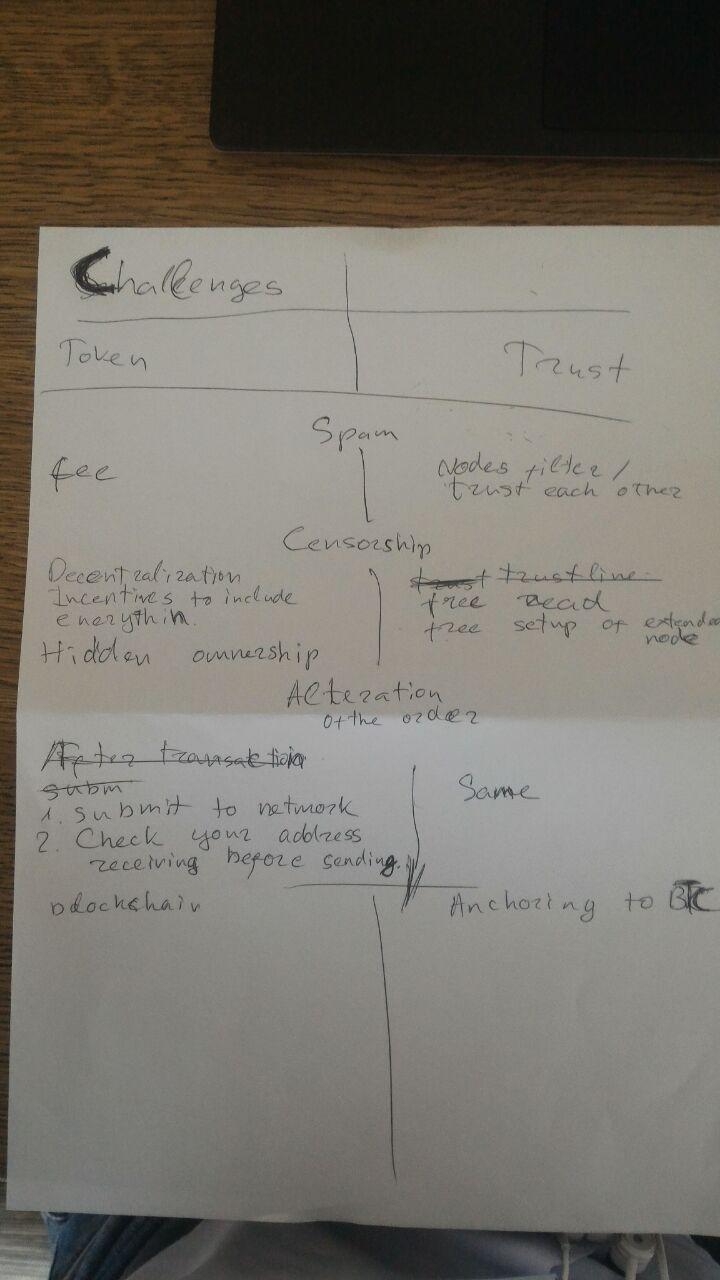 Challenges
Token
Trust
Spam
fee
Nodes filter/
trust each other
Censorship
Decentralization
Incentives to include
enerythin.
Hidden ownership
trust trustline
free read
free setup of extended
node
Alteration
of the order
After transaction
subm
1. submit to network
2. Check your address
receiving before sending.
Same
blockchain
Anchoring to BTC